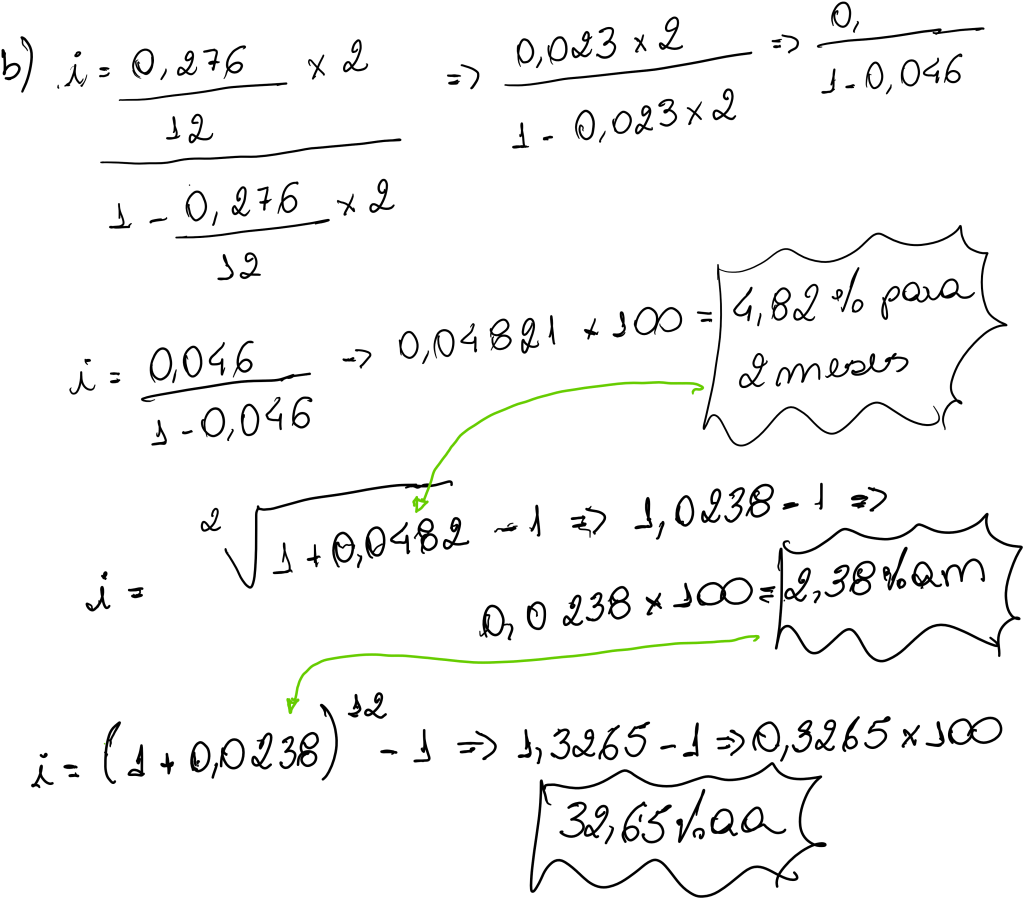 b) i = 0,276/12 × 2 / 1 - 0,276/12 × 2 => 0,023 × 2 / 1 - 0,023 × 2 => 0, / 1 - 0,046
i = 0,046 / 1 - 0,046 -> 0,04821 × 100 = 4,82 % para 2 meses
i = ²√1 + 0,0482 - 1 => 1,0238 - 1 =>
0,0238 × 100 = 2,38 % am
i = (1 + 0,0238)¹² - 1 => 1,3265 - 1 => 0,3265 × 100
32,65 % aa